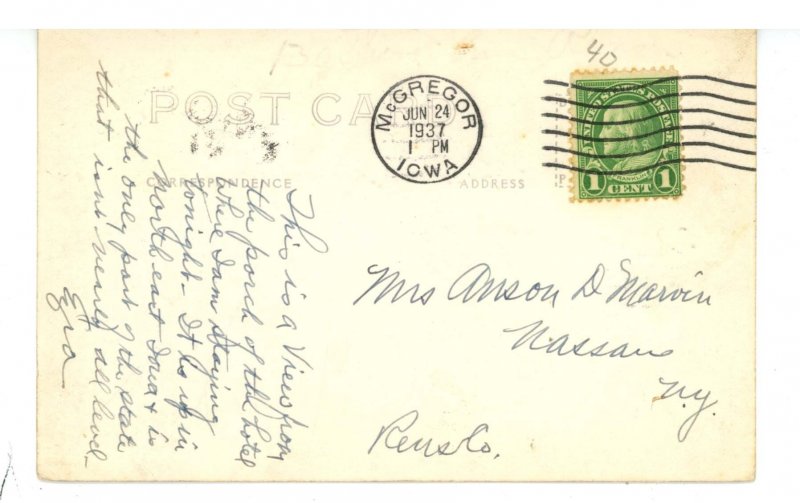 40
POST CARD
McGREGOR
JUN 24
1937
1 PM
IOWA
UNITED STATES POSTAGE
FRANKLIN
1 CENT 1
CORRESPONDENCE
ADDRESS
This is a View from
the porch of the hotel
where I am staying
tonight - It is up in
Northeast Iowa & is
the only part of the state
that isn't nearly all level -
Ezra
Mrs Anson D Marvin
Nassau
N.Y.
Rens Co.